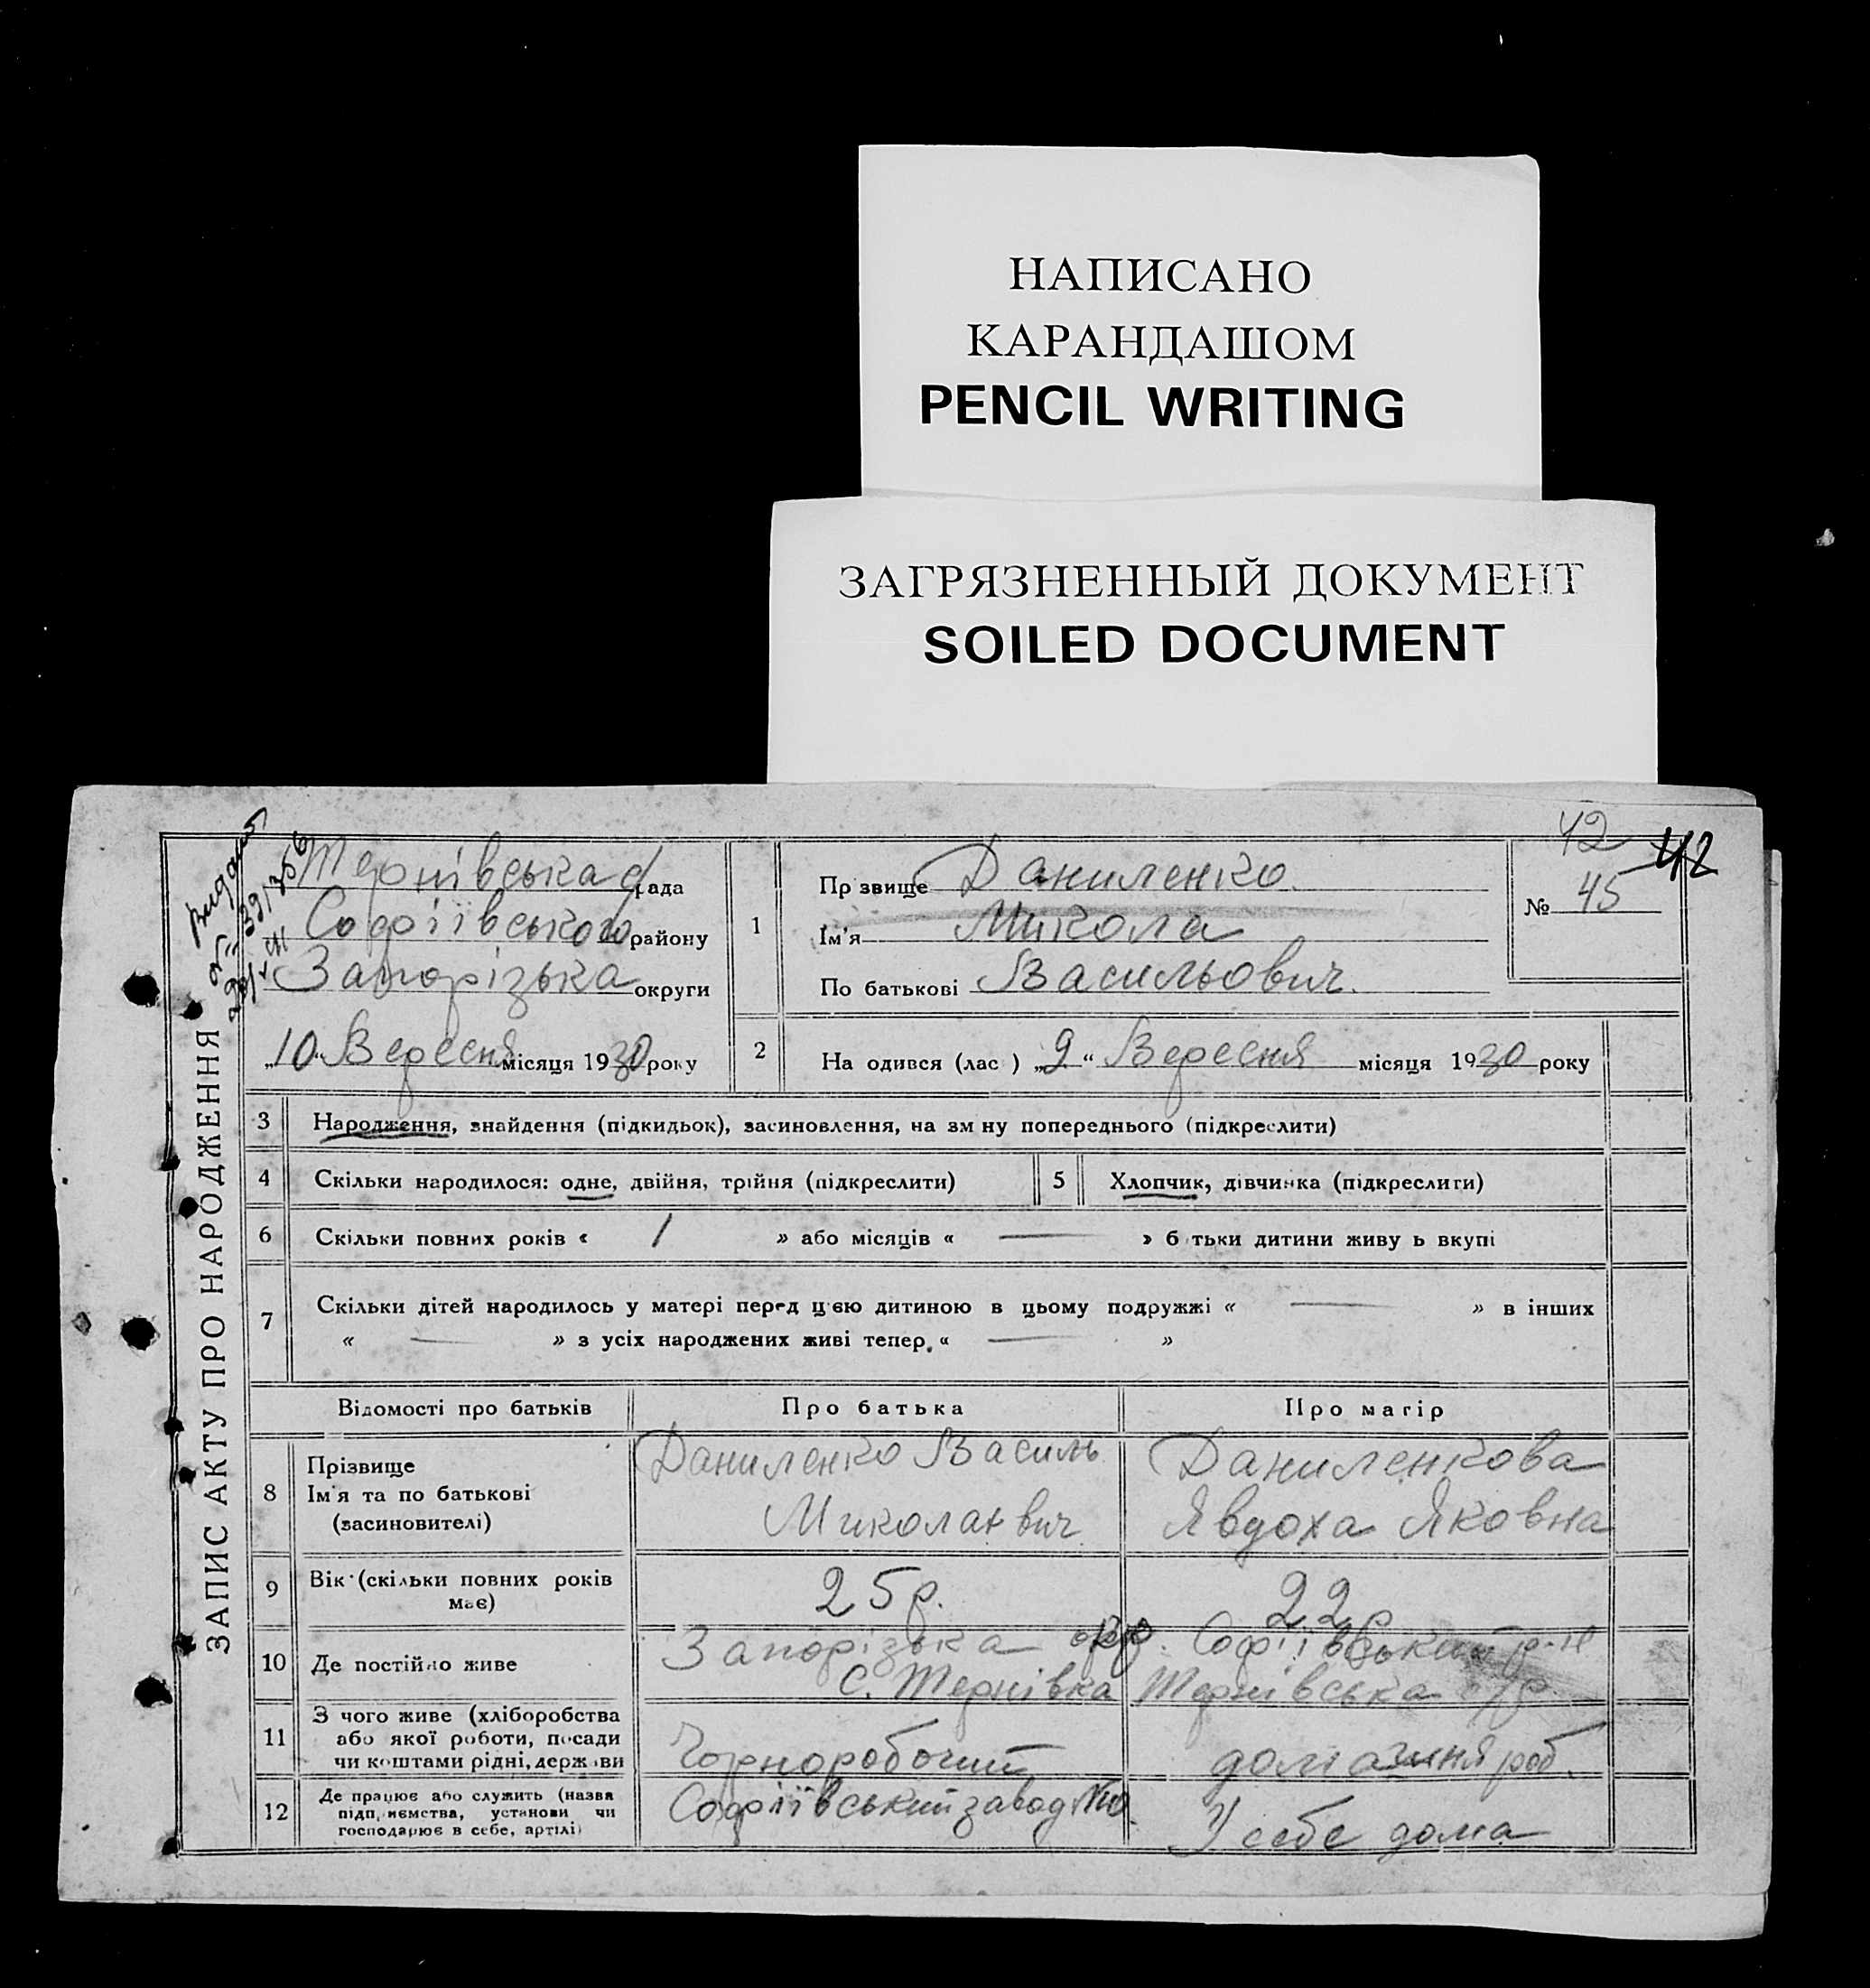 НАПИСАНО
КАРАНДАШОМ
PENCIL WRITING
ЗАГРЯЗНЕННЫЙ ДОКУМЕНТ
SOILED DOCUMENT
42 42
ЗАПИС АКТУ ПРО НАРОДЖЕННЯ
Тернівська с/рада
Софіївського району
Запорізька округи
„10“ Вересня місяця 1930 року
1
Пр звище Даниленко
Ім'я Микола
По батькові Васильович.
№ 45
2 На одився (лас ) „9“ Вересня місяця 1930 року
3 Народження, знайдення (підкидьок), засиновлення, на зм ну попереднього (підкреслити)
4 Скільки народилося: одне, двійня, трійня (підкреслити) 5 Хлопчик, дівчинка (підкреслити)
6 Скільки повних років « 1 » або місяців « — » б тьки дитини живу ь вкупі
7 Скільки дітей народилось у матері перед цією дитиною в цьому подружжі « — » в інших
« — » з усіх народжених живі тепер « — »
Відомості про батьків Про батька Про матір
8 Прізвище
Ім'я та по батькові
(засиновителі)
Даниленко Василь
Миколаєвич
Даниленкова
Явдоха Яковна
9 Вік (скільки повних років
має)
25 р. 22 р
10 Де постійно живе
Запорізька окр. Софіївський р-н
с. Тернівка Тернівська с/р.
11 З чого живе (хліборобства
або якої роботи, посади
чи коштами рідні, держави
Чорноробочий домашня роб.
12 Де працює або служить (назва
підп иємства, установи чи
господарює в себе, артілі)
Софіївський завод
У себе дома